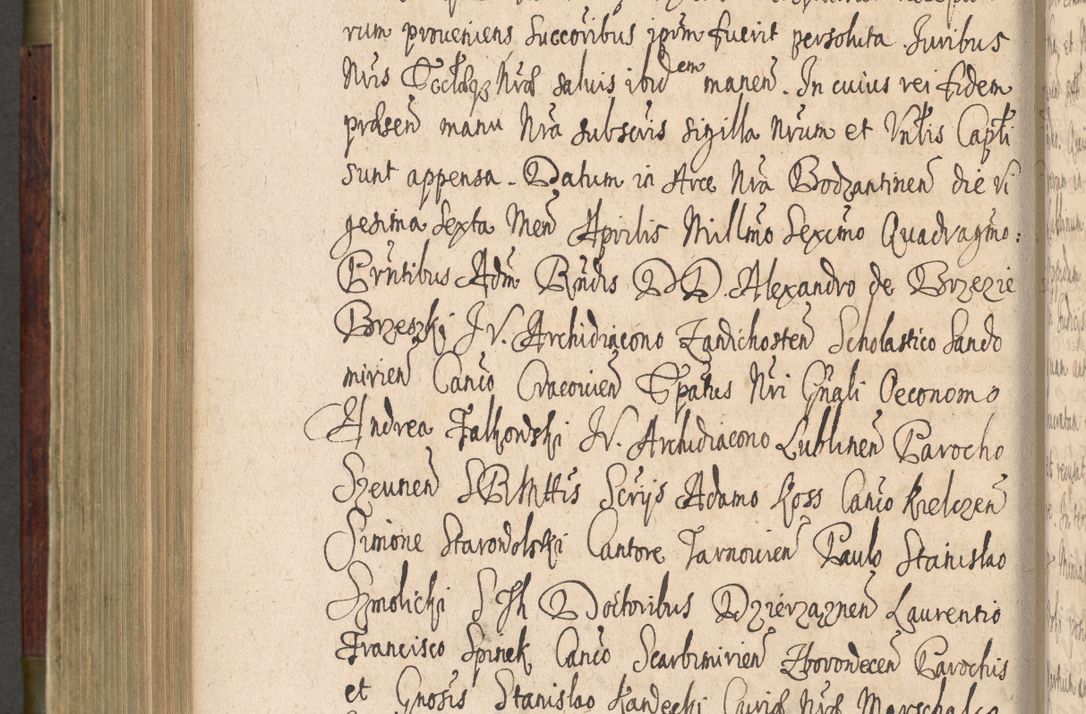 rum proveniens Succoribus ipm̃ fuerit persoluta Iuribus
Nris Eccłæq3 Nræ salvis ibidem manen̄. In cuius rei fidem
præsen̄ manu Nr̃a subscris sigilla Nrum et Vnłis Capłi
sunt appensa. Datum in Arce Nr̃a Bodzantinen̄ die vi
gesima Sexta Men̄ Aprilis Millm̃o Sexcm̃o Quadragm̃o:
Prn̄tibus Adm̃ Rn̄dis DD Alexandro de Brzezie
Brzeski I.V. Archidiacono Zavichosten̄ Scholastico Sando
mirien̄ Can̄co Cracovien̄ Epatus Nri Gn̄ali Oeconomo
Andrea Falkowski I.V. Archidiacono Lublinen̄ Parocho
Szeunen̄ SRMttis Scrijs Adamo Koss Can̄co Kielczen̄
Simone Starovolski Cantore Tarnovien̄ Paulo Stanislao
Smolicki S Th Doctoribus Dzierzaznen̄ Laurentio
Francisco Spinek Can̄co Scarbimirien̄ Zborovecen̄ Parochis
et Gn̄osis Stanislao Marschalco